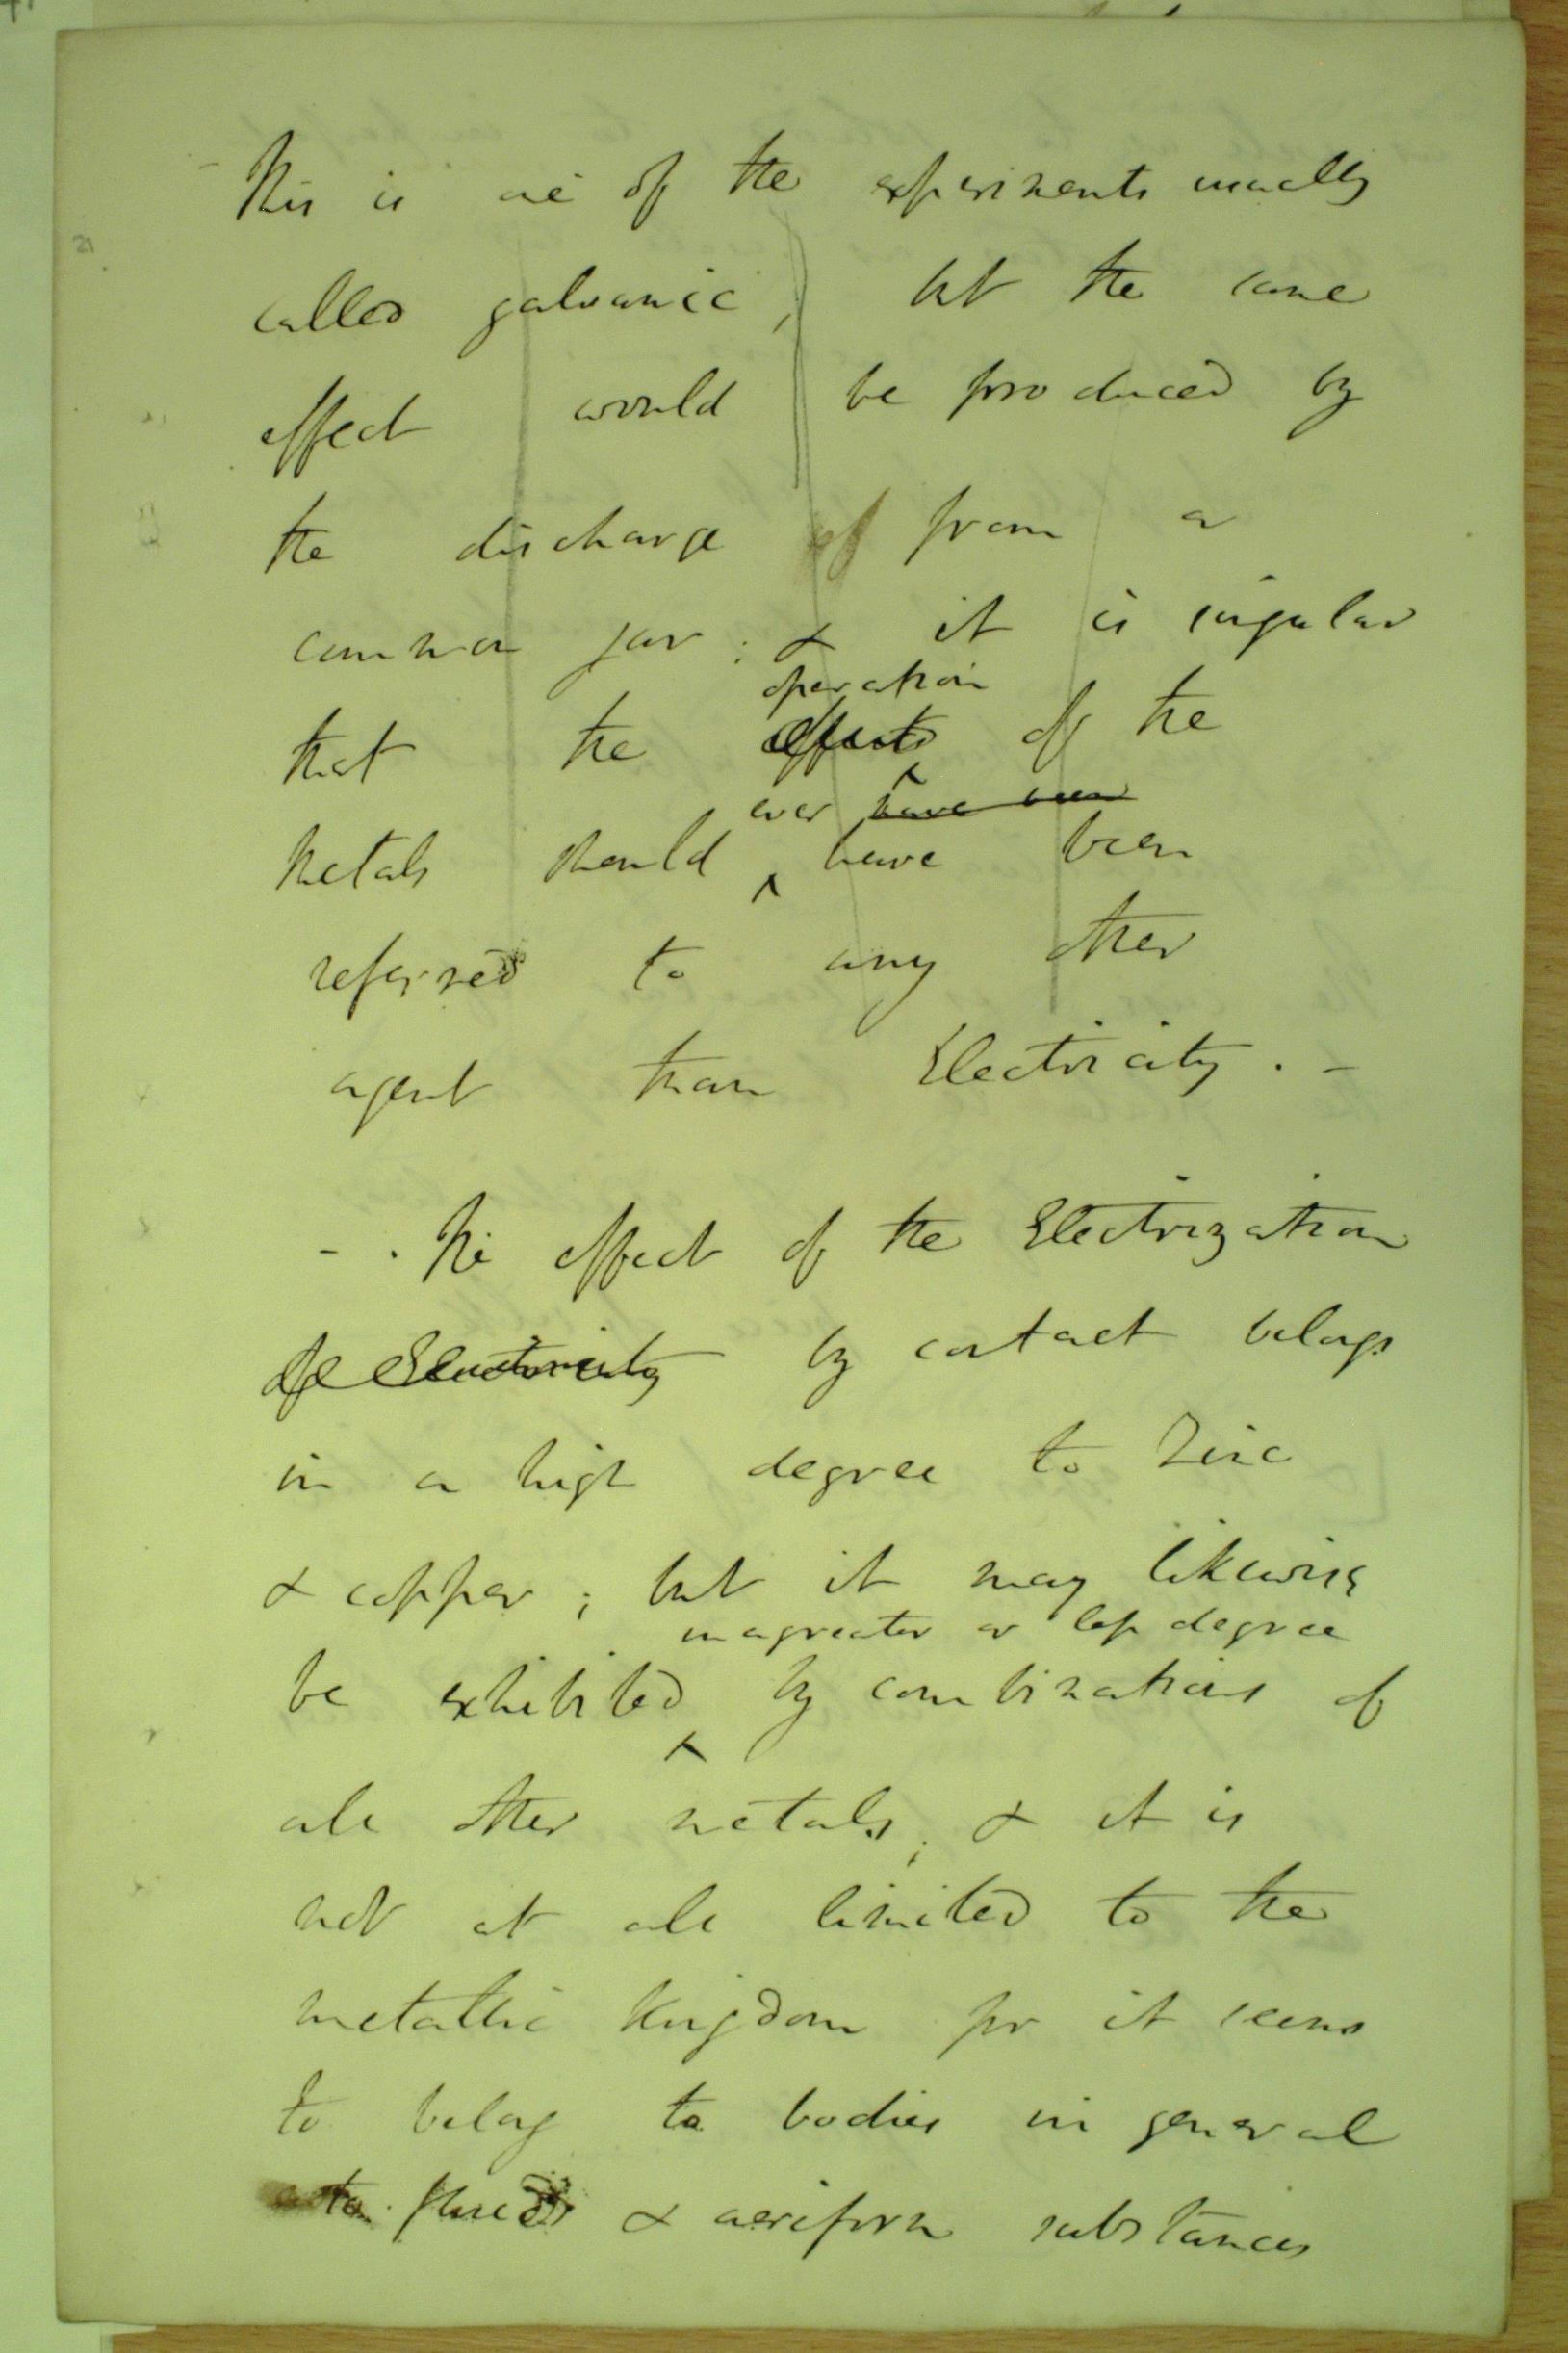 - This is one of the experiments usually
called galvanic; but the same
effect would be produced by
the discharge of from a
common jar; & it is singular
operation
that the effects of the
ever have been
Metals should have been
referred to any other
agent than Electricity. -
- . The effect of the Electrization
of Electricity by contact belongs
in a high degree to Zinc
& copper; but it may likewise
in a greater or less degree
be exhibited by combinations of
all other metals; & it is
not at all limited to the
metallic Kingdom for it seems
to belong to bodies in general
to fluids & aeriform substances